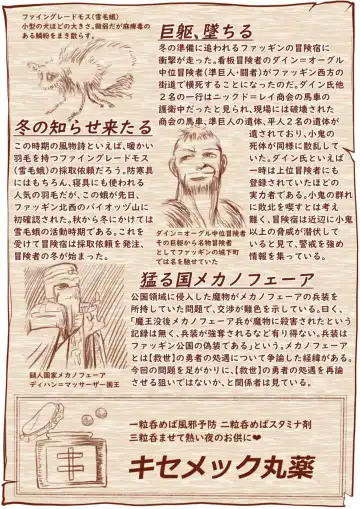 ファイングレードモス(雪毛蛾)
小型の犬ほどの大きさ。微弱だが麻痺毒の
ある鱗粉をまき散らす。
巨躯、墜ちる
冬の準備に追われるファッギンの冒険宿に
衝撃が走った。看板冒険者のダイン＝オーグル
中位冒険者(準巨人・闘者)がファッギン西方の
街道で横死することになったのだ。ダイン氏他
2名の一行はニックド＝レイ商会の馬車の
護衛中だったと見られ、現場には破壊された
商会の馬車、準巨人の遺体、平人2名の遺体が
遺されており、小鬼の
死体が同様に散乱して
いた。ダイン氏といえば
一時は上位冒険者にも
登録されていたほどの
実力者である。小鬼の群れ
に敗北を喫すとは考え
難く、冒険宿は近辺に小鬼
以上の脅威が潜伏して
いると見て、警戒を強め
情報を集っている。
冬の知らせ来たる
この時期の風物詩といえば、暖かい
羽毛を持つファイングレードモス
(雪毛蛾)の採取依頼だろう。防寒具
にはもちろん、寝具にも使われる
人気の羽毛だが、この蛾が先日、
ファッギン北西のバイオッヅ山に
初確認された。秋から冬にかけては
雪毛蛾の活動時期である。これを
受けて冒険宿は採取依頼を発注、
冒険者の冬が始まった。
ダイン＝オーグル中位冒険者
その巨躯から名物冒険者
としてファッギンの城下町
では名を馳せていた
猛る国メカノフェーア
公国領域に侵入した魔物がメカノフェーアの兵装を
所持していた問題で、交渉が難色を示している。曰く、
「魔王没後メカノフェーア兵が魔物に殺害されたという
記録は無く、兵装が強奪されるなど有り得ない。兵装は
ファッギン公国の偽装である」という。メカノフェーア
とは【救世】の勇者の処遇について争論した経緯がある。
今回の問題を足がかりに、【救世】の勇者の処遇を再論
させる狙いではないか、と関係者は見ている。
鍛人国家メカノフェーア
ディハン＝マッサーザー国王
一粒呑めば風邪予防 二粒呑めばスタミナ剤
三粒呑ませて熱い夜のお供に❤
キセメック丸薬